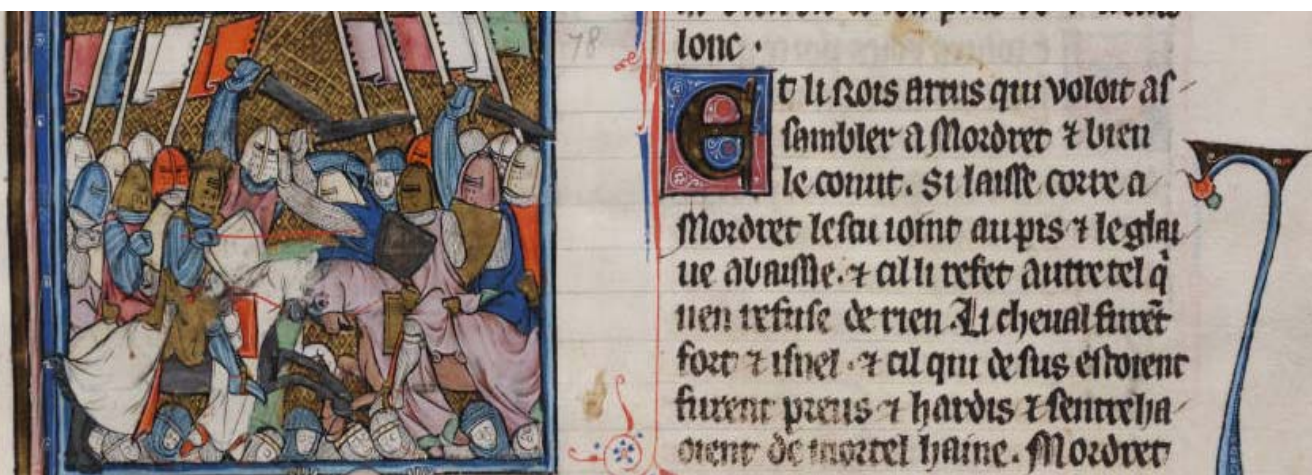 78
lonc ·
Et li Rois artus qui voloit as
sambler a Mordret ⁊ bien
le conut. si laisse corre a
Mordret lescu ioint au pis ⁊ le glai
ue abaisse. ⁊ cil li refet autretel q̇
nen refuse de rien. Li cheual furēt
fort ⁊ isnel. ⁊ cil qui de sus estoient
furent preus ⁊ hardis ⁊ sentreha
oient de mortel haine. Mordret